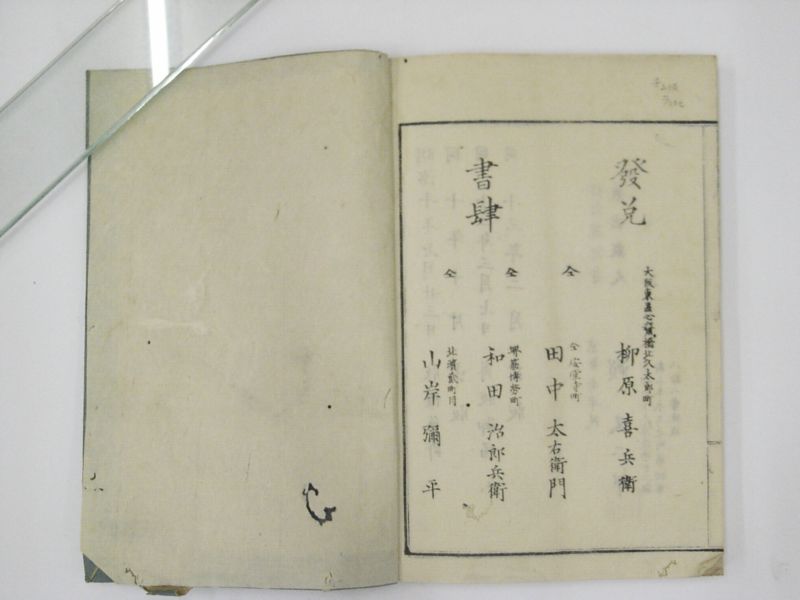 發兌
書肆
大阪東區心齋橋北久太郎町
柳原喜兵衛
仝
仝 安堂寺町
田中太右衛門
仝
堺區博労町
和田治郎兵衛
仝
北濱貳町目
山岸彌平